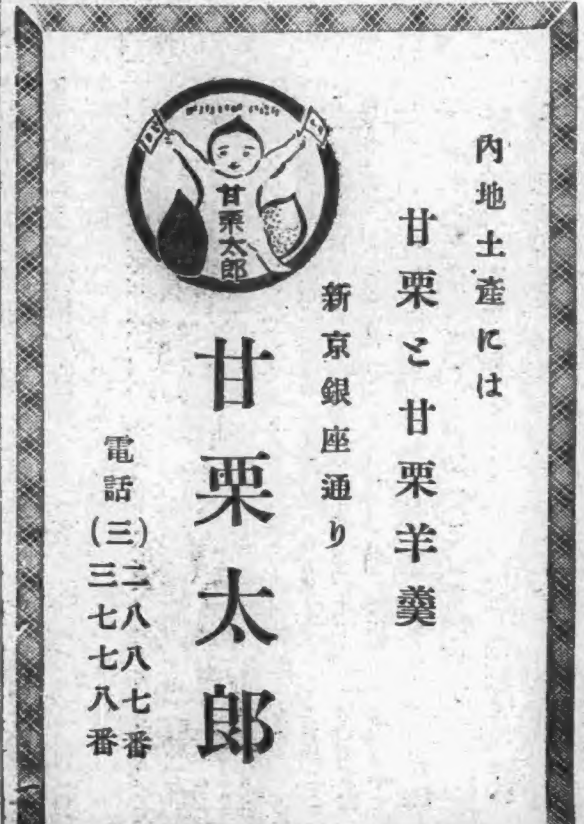 内地土産には
甘栗と甘栗羊羹
新京銀座通り
甘栗太郎
甘栗太郎
電話(三)二八八七番
三七七八番